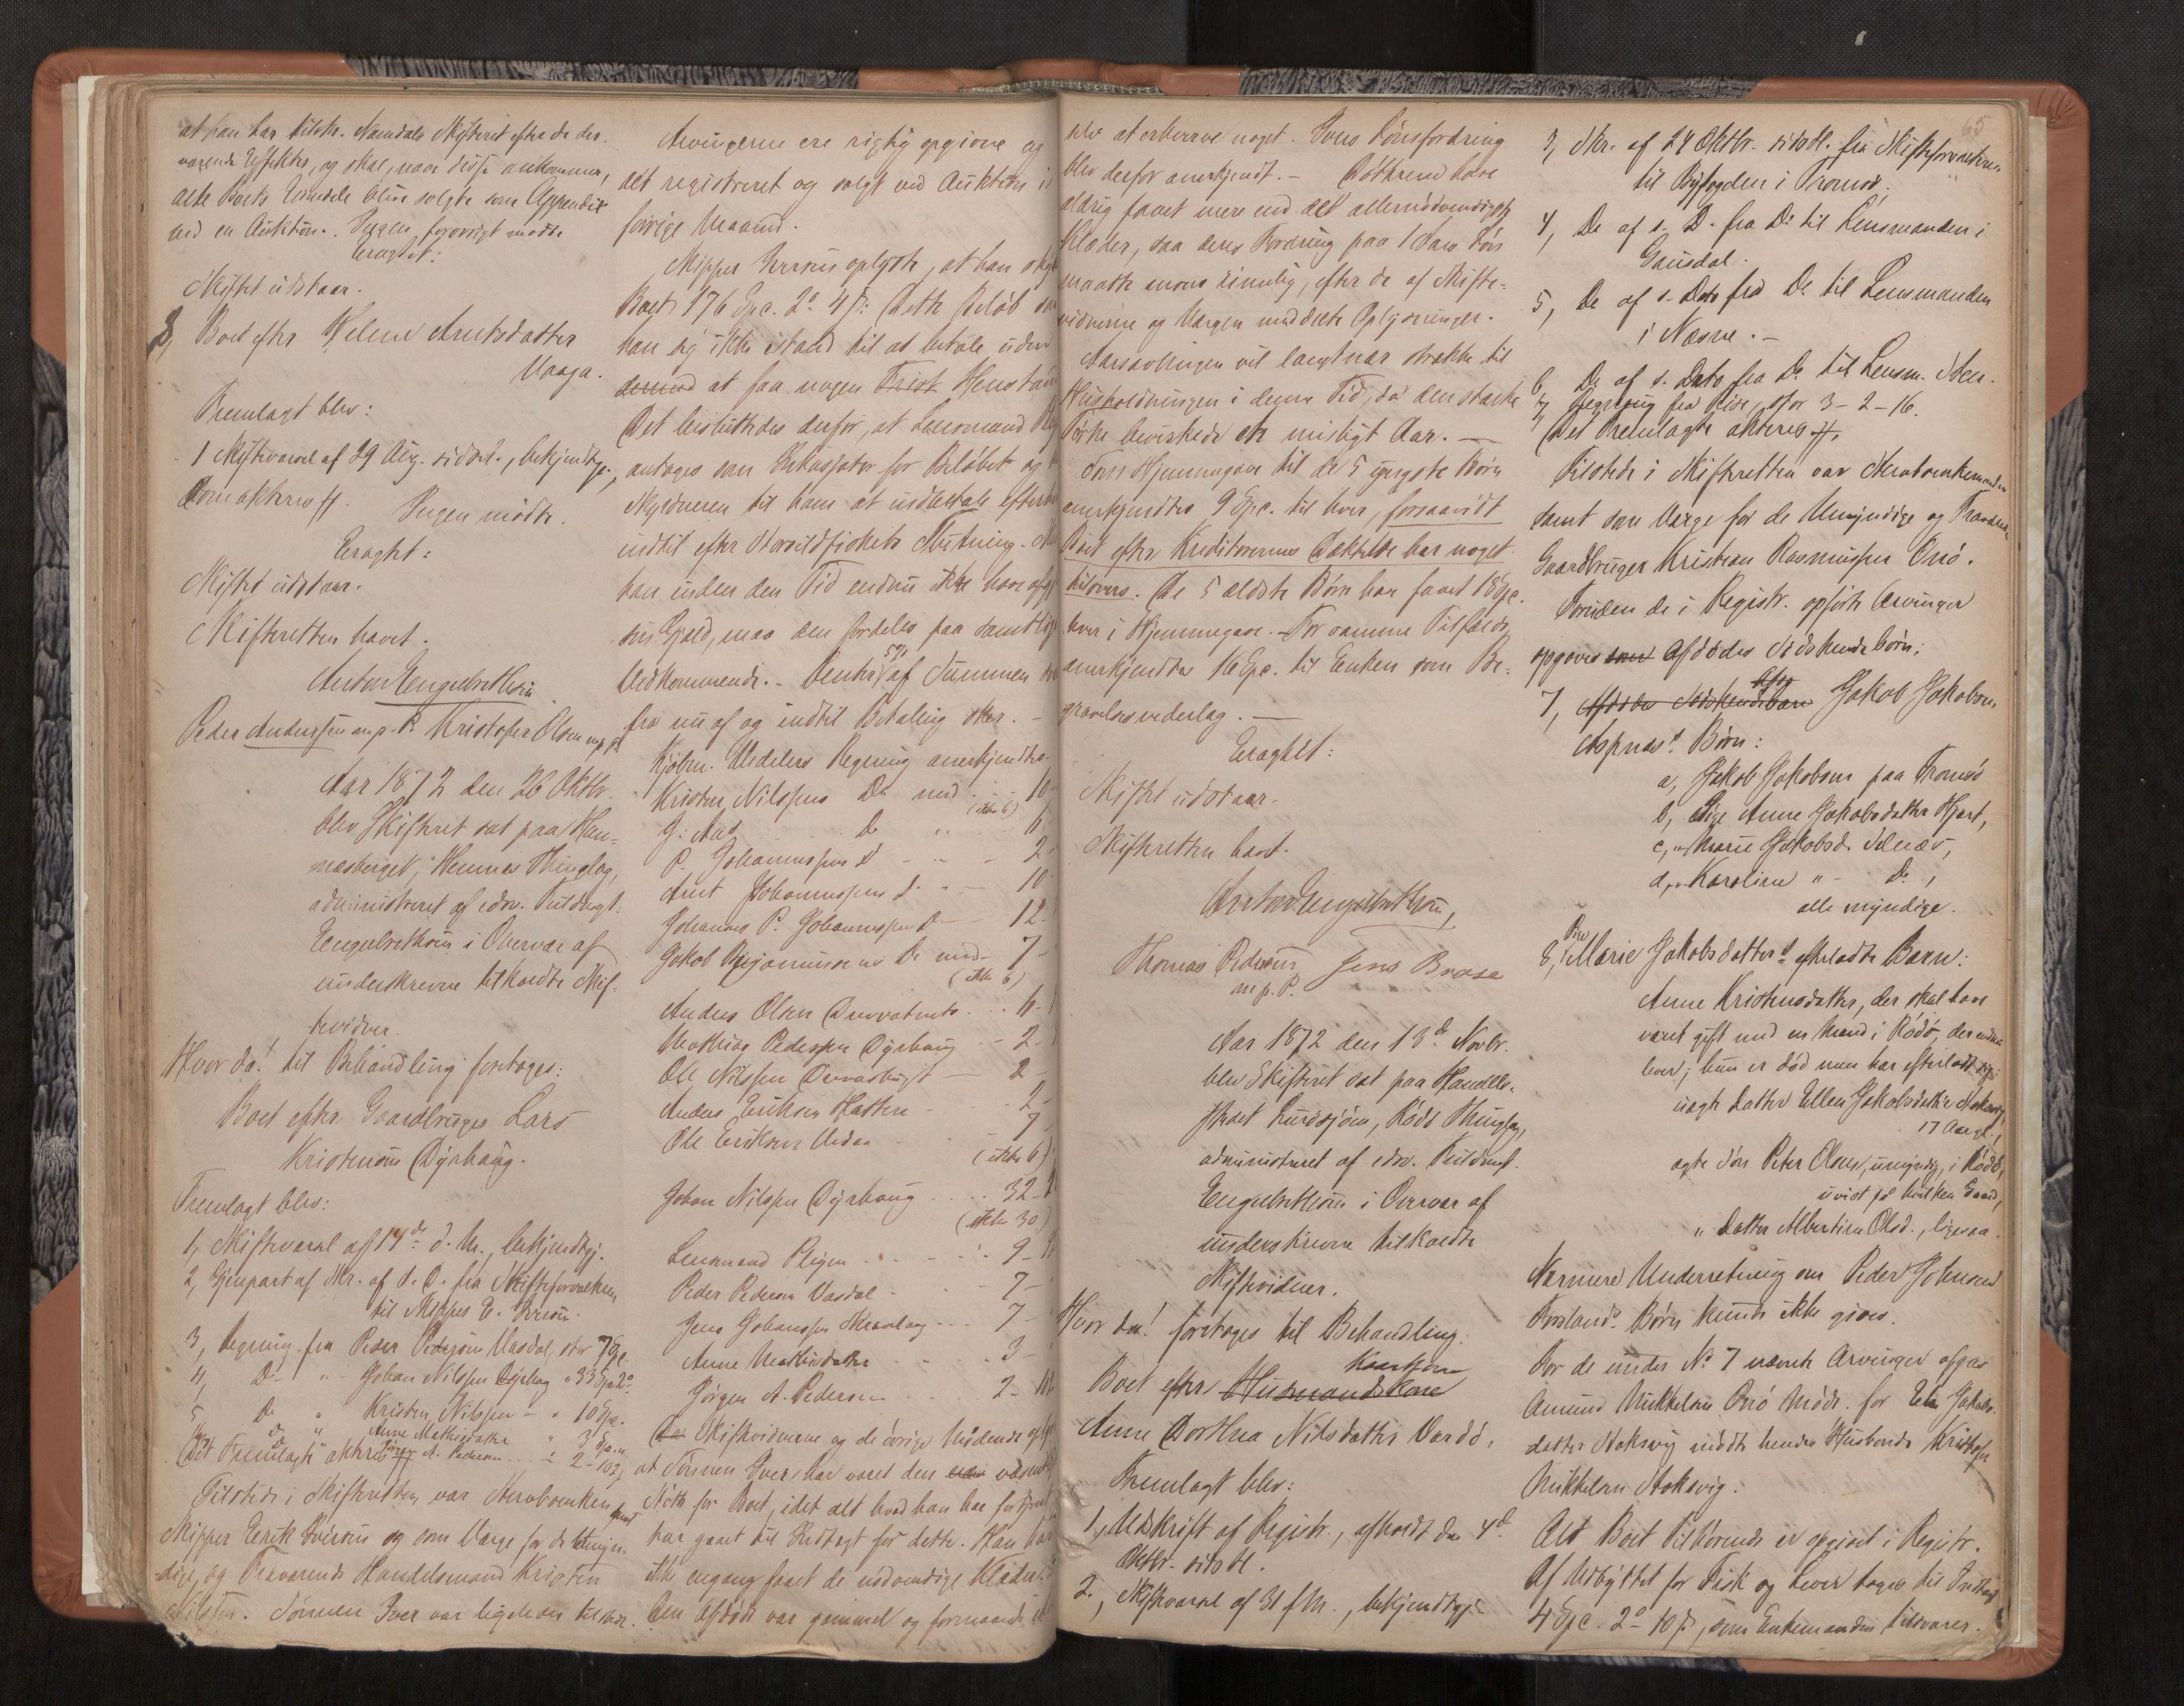 at han har tilskr. Namdals Skifteret efter de der
værende Effekter, og skal, naar disse ankommer,
alle Boets Eiendele blive solgte som Appendix
ved en Auktion. Ingen forøvrigt mødte.
Eragtet:
Skiftet udstaar.
Boet efter Helene Arntsdatter
Vaaga.
Fremlagt blev:
1 Skiftevarsel af 29 Aug. sidstl., bekjendtgj.,
som akteres ff. Ingen mødte.
Eragtet:
Skiftet udstaar.
Skifteretten hævet.
Anton Engelbrethsen
Peder Anderssen m. p. P. Kristofer Olsen m. p. P.
Aar 1872 den 26 Oktbr.
blev Skifteret sat paa Hem-
nesberget, Hemnes Thinglag,
administreret af edsv. Fuldmgt.
Engelbrethsen i Overvær af
underskrevne tilkaldte Skif-
tevidner.
Hvor da! til Behandling foretoges:
Boet efter Gaardbruger Lars
Kristensen Dyrhaug.
Fremlagt blev:
1, Skiftevarsel af 14de d. M., bekjendtgj.
2, Gjenpart af Skr. af s. D. fra Skifteforvalteren
til Skipper E. Iversen.
3, Regning fra Peder Pedersen Vasdal, stor 7 Spc.
4, Do " - Johan Nilssen Dyrhag " 33 Spc. 2
5 Do " Kristen Nilssen - " 10 Spc.
Do " Anne Mathisdatter " 3 Spc. "
Det Fremlagte akteres ff. Jörgen A. Pedersen - 2 - 102
Tilstede i Skifteretten var Stervboenken samt
Skipper Eerik Iversen og som Værge for de Umyn-
dige og Fraværende Handelsmand Kristen
Nilssen. Sønnen Iver var ligeledes tilstede.
Arvingerne ere rigtig opgivne og
alt registreret og solgt ved Auktion i
forrige Maaned.
Skipper Iversen oplyste, at han skylder
Boet 176 Spc. 2 4 s: Dette Beløb saa
han sig ikke istand til at betale uden
dermed at faa nogen Frist Henstand
Det besluttedes derfor, at Lensmand
antages som Inkassator for Beløbet og
Skyldneren til ham at indbetale efterhv
indtil efter Vaarsildfiskets Slutning.
han inden den Tid endnu ikke have afgjort
sin Gjæld, maa den fordeles paa samtlige
Vedkommende. - Renter 5% af Summen
fra nu af og indtil Betaling sker. -
Kjøbm. Medelers Regning anerkjendtes
Kristen Nilssens Do med . . 10
(ikke 6)
G. Aas Do " 6
P. Johannessens d - " - 2
Arnt Johannessens d. " - 10
Johannes P. Johannessen D - 12.
Jakob Benjaminsens Do med - 7 -
(ikke 6)
Anders Olsen Durvatnet . . 6.
Mathias Pederssen Dyrhaug - - 2 -
Ole Nilssen Durvasbugt - 2 -
Anders Eriksen Hattere - 2 -
Ole Eriksens Umdaa - 7 -
(ikke 6)
Johan Nilssen Dyrhaug . . . . 32 -
(ikke 30.)
Lensmand Pleym - - . - . 9 -
Peder Pedersen Vasdal - . - 7 -
Jens Johanssen Skravlaag - - - 7 -
Anne Mathisdatter - . . 3 -
Jørgen A. Pedersen . . . . 2 -
De Skiftevidnerne og de øvrige Mødende opl
at Sønnen Iver, har været den eneste væsent
Støtte for Boet, idet alt hvad han har fortjent
har gaaet til Indtægt for dette. Han har
ikke engang faaet de nødvendige Klæder.
Den Afdøde var gammel og formaaede ik
selv at erhverve noget. Ivers Lønsfordring
blev derfor anerkjendt. - Døttrene have
aldrig faaet mere end det allernødvendigste
Klæder, saa deres Fordring paa 1 Aars Løn
maatte ansees rimelig, efter de af Skifte-
vidnerne og Værgen meddelte Oplysninger.
Aarsavlingen vil langt nær strække til
Husholdningen i denne Tid, da den stærke
Tørke bevirkede et misligt Aar. -
Som Hjemmegave til de 5 yngste Børn
anerkjendtes 9 Spc. til hver, forsaavidt
Boet efter Kreditorernes Dækkelse har noget
tilovers. De 5 ældste Børn har faaet 18 Spc.
hver i Hjemmegave. - For samme Tilfælde
anerkjendtes 16 Spc. til Enken som Be-
gravelsesvederlag. -
Eragtet:
Skiftet udstaar.
Skifteretten hævet.
Anton Engelbrethsen,
Thomas Pedersen Jens Brase
m. p. P.
Aar 1872 den 13de Novbr.
blev Skifteret sat paa Handels-
stedet Lurøsjøen, Rødø Thinglag,
administreret af edsv. Fuldmgt.
Engelbrethsen i Overvær af
underskrevne tilkaldte
Skiftevidner.
Hvor da! foretoges til Behandling:
Boet efter Husmandskone
Anne Dorthea Nilsdatter Vardø.
Fremlagt blev:
1, Udskrift af Registr., afholdt den 4de
Oktbr. sidstl.
2, Skiftevarsel af 31 f. M., bekjendtgj.
65
3, Skr. af 24 Oktbr. sidstl. fra Skifteforvalteren
til Byfogden i Tromsø,
4, Do af s. D. fra Do til Lensmanden i
Gausdal.
5, Do af s. Dato fra Do til Lensmanden
i Næsne. -
6, Do af s. Dato fra Do til Lensm. Sten.
7 Regning fra Riise, stor 3 - 2 - 16.
Det Fremlagte akteres ff.
Tilstede i Skifteretten var Stervboenkemanden
samt som Værge for de Umyndige og Fraværende
Gaardbruger Kristian Rasmussen Onø.
Foruden de i Registr. opførte Arvinger
opgaves som Afdødes Södskendebörn:
7, Afdødes Södskendebarn Afdø Jakob Jakobsen
Aspnæs's Børn:
a, Jakob Jakobsen paa Tromsö
b, Pige Anne Jakobsdatter Hjart,
c, " Marie Jakobsd. Selnæs,
d, " Karoline " - Do,
alle myndige.
8, Pige Marie Jakobsdatters efterladte Børn:
Anne Kristensdatter, der skal have
været gift med en Mand i Rødø, der endnu
lever; hun er død men har efterladt sig:
uægte Datter Ellen Jakobsdatter Stoksvig,
17 Aar gl.,
ægte Søn Peter Olsen, umyndig, i Rødö,
uvist på hvilken Gaard,
" Datter Albertine Olsd., ligesaa.
Nærmere Underretning om Peder Johnsen
Korslands Børn kunde ikke gives.
For de under No 7 nævnte Arvinger afgav
Amund Mikkelsen Onö Möde, for Ellen Jakobs-
datter Stoksvig mødte hendes Husbonde Kristofer
Mikkelsen Stoksvig.
Alt Boet Tilhørende er opgivet i Registr.
Af Udbyttet for Fisk og Lever toges til Indtægt
4 Spc. 2 - 10 s, som Enkemanden tilsvarer.